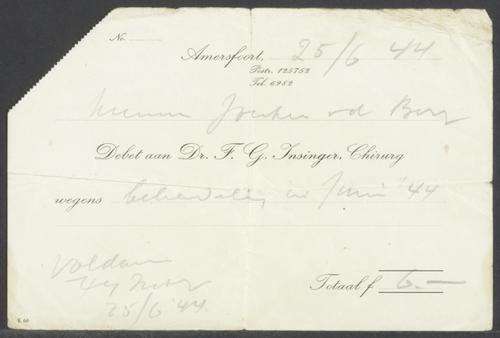 No.
Amersfoort, 25/6 '44
Postr. 125752
Tel. 6952
vd Berg
Debet aan Dr. F. G. Insinger, Chirurg
wegens behandeling in Juni '44
Voldaan
25/6 '44
Totaal f 6.—
K 60